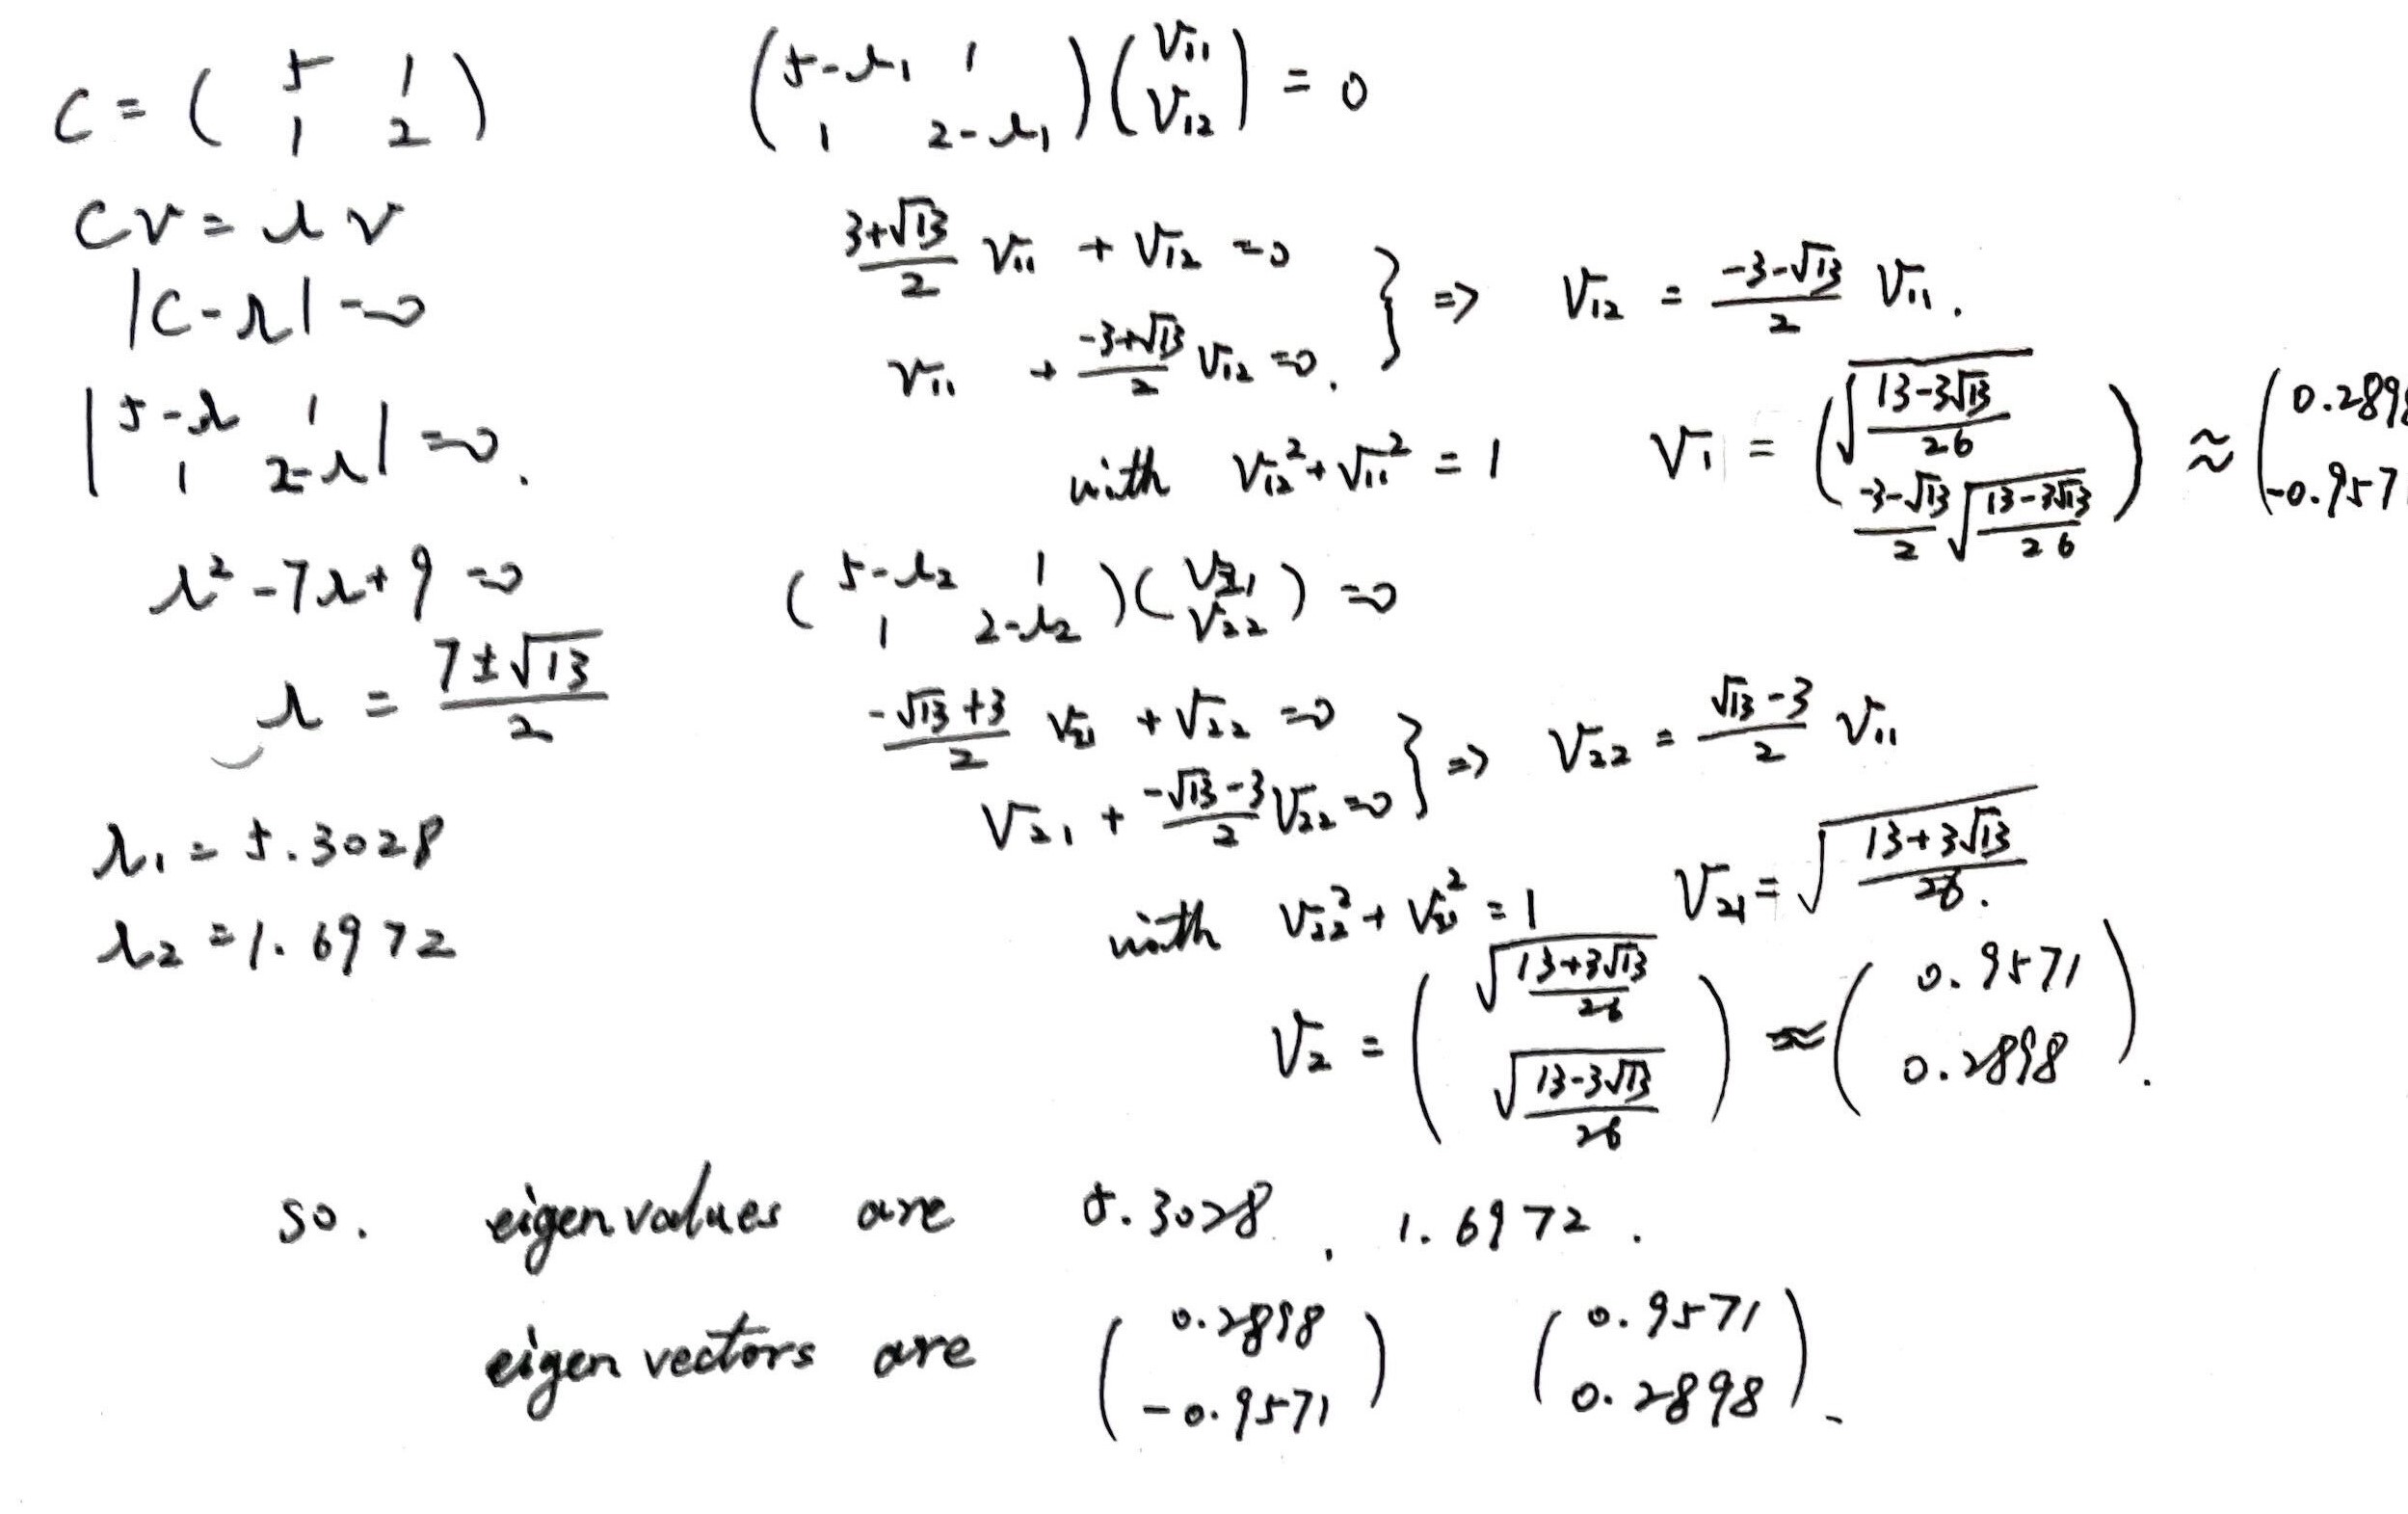 C = ( 5 1
1 2 )
CV = λ V
|C - λ| = 0
| 5-λ 1
1 2-λ | = 0.
λ² - 7λ + 9 = 0
λ = (7 ± √13)/2
λ₁ = 5.3028
λ₂ = 1.6972
( 5-λ₁ 1
1 2-λ₁ ) ( V₁₁
V₁₂ ) = 0
(3+√13)/2 V₁₁ + V₁₂ = 0
V₁₁ + (-3+√13)/2 V₁₂ = 0.
} => V₁₂ = (-3-√13)/2 V₁₁.
with V₁₂² + V₁₁² = 1
V₁ = ( √((13-3√13)/26)
(-3-√13)/2 √((13-3√13)/26) ) ≈ ( 0.289
-0.957
( 5-λ₂ 1
1 2-λ₂ ) ( V₂₁
V₂₂ ) = 0
(-√13+3)/2 V₂₁ + V₂₂ = 0
V₂₁ + (-√13-3)/2 V₂₂ = 0
} => V₂₂ = (√13-3)/2 V₁₁
with V₂₂² + V₂₁² = 1 V₂₁ = √((13+3√13)/26).
V₂ = ( √((13+3√13)/26)
√((13-3√13)/26) ) ≈ ( 0.9571
0.2898 ).
so. eigenvalues are 5.3028, 1.6972.
eigen vectors are ( 0.2898
-0.9571 ) ( 0.9571
0.2898 ).